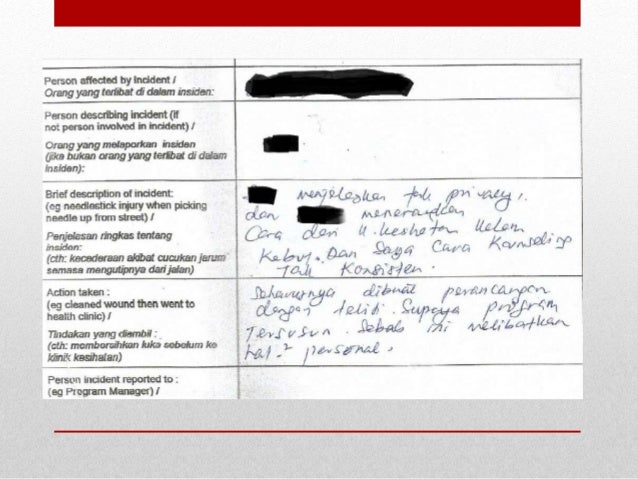 Person affected by Incident /
Orang yang terlibat di dalam insiden:
Person describing incident (if
not person involved in incident) /
Orang yang melaporkan insiden
(jika bukan orang yang terlibat di dalam
insiden):
Brief description of incident:
(eg needlestick injury when picking
needle up from street) /
Penjelasan ringkas tentang
insiden:
(cth: kecederaan akibat cucukan jarum
semasa mengutipnya dari jalan)
menjelaskan tak
dan menerangkan
Cara dan
Kabur. Dan Saya Cara Kaunseling
Tak Konsisten.
Action taken :
(eg cleaned wound then went to
health clinic) /
Tindakan yang diambil :
(cth: membersihkan luka sebelum ke
klinik kesihatan)
Seharusnya dibuat perancangan
dengan teliti. Supaya program
Tersusun. Sebab ini melibatkan
hal.² personal.
Person incident reported to :
(eg Program Manager) /